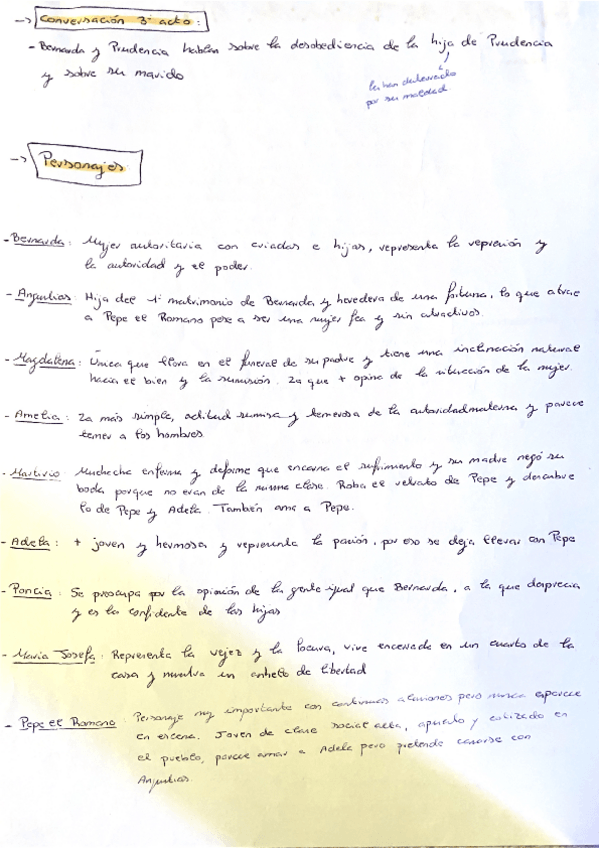 -> Conversación 3º acto:
- Bernarda y Prudencia hablan sobre la desobediencia de la hija de Prudencia
y sobre su marido
la han desheredado
por su maldad.
-> Personajes
- Bernarda: Mujer autoritaria con criadas e hijas, representa la represión y
la autoridad y el poder.
- Angustias: Hija del 1º matrimonio de Bernarda y heredera de una fortuna, lo que atrae
a Pepe el Romano pese a ser una mujer fea y sin atractivos.
- Magdalena: Única que llora en el funeral de su padre y tiene una inclinación natural
hacia el bien y la sumisión. La que + opina de la situación de la mujer.
- Amelia: La más simple, actitud sumisa y temerosa de la autoridad materna y parece
temer a los hombres.
- Martirio: Muchacha enferma y deforme que encarna el sufrimiento y su madre negó su
boda porque no eran de la misma clase. Roba el retrato de Pepe y descubre
lo de Pepe y Adela. También ama a Pepe.
- Adela: + joven y hermosa y representa la pasión, por eso se deja llevar con Pepe
- Poncia: Se preocupa por la opinión de la gente igual que Bernarda, a la que desprecia
y es la confidente de las hijas
- María Josefa: Representa la vejez y la locura, vive encerrada en un cuarto de la
casa y muestra un anhelo de libertad
- Pepe el Romano: Personaje muy importante con continuas alusiones pero nunca aparece
en escena. Joven de clase social alta, apuesto y cotizado en
el pueblo, parece amar a Adela pero pretende casarse con
Angustias.